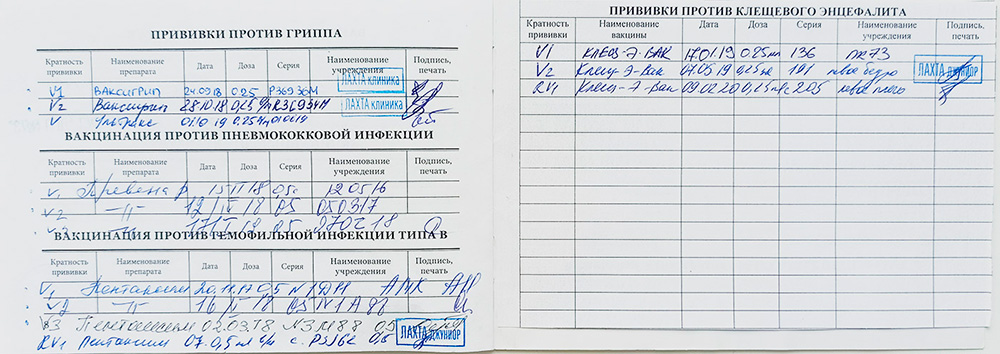 ПРИВИВКИ ПРОТИВ ГРИППА
Кратность прививки Наименование препарата Дата Доза Серия Наименование учреждения Подпись, печать
V1 ВАКСИГРИП 24.09.18 0,25 P3G936M ЛАХТА клиника
V2 Ваксигрип 28.10.18 0,25 ЛАХТА клиника
V Ультрикс 01.10.19 0,25
ВАКЦИНАЦИЯ ПРОТИВ ПНЕВМОКОККОВОЙ ИНФЕКЦИИ
Кратность прививки Наименование препарата Дата Доза Серия Наименование учреждения Подпись, печать
V1 Превенар 18
V2 -//- 12 18 05 050317
V3 -//- 17 18 05 070218
ВАКЦИНАЦИЯ ПРОТИВ ГЕМОФИЛЬНОЙ ИНФЕКЦИИ ТИПА В
Кратность прививки Наименование препарата Дата Доза Серия Наименование учреждения Подпись, печать
V1 Пентаксим 20.11.17 0,5
V2 -//- 16 18 05
V3 Пентаксим 02.03.18 0,5 ЛАХТА ДЖУНИОР
RV1 Пентаксим 07. 0,5 мл
ПРИВИВКИ ПРОТИВ КЛЕЩЕВОГО ЭНЦЕФАЛИТА
Кратность прививки Наименование вакцины Дата Доза Серия Наименование учреждения Подпись, печать
V1 КЛЕЩ-Э-ВАК 17.01.19 0,25 мл 136
V2 Клещ-Э-Вак 07.05.19 0,25 мл левое бедро ЛАХТА ДЖУНИОР
RV1 Клещ-Э-Вак 09.02.20 0,25 мл 205 левое плечо